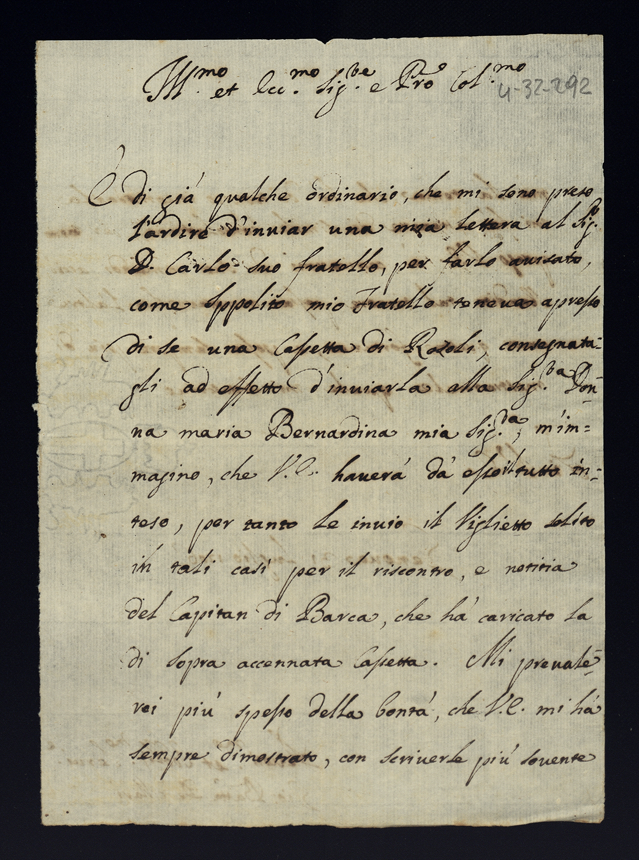 Ill.mo et Ecc.mo Sig.re e Pro Col.mo
4-32-292
È di già qualche ordinario, che mi sono preso
l'ardire d'inviar una mia lettera al Sig.r
D. Carlo suo fratello, per farlo avisato,
come Ippolito mio fratello teneva apresso
di se una Cassetta di Rosoli, consegnata-
gli ad effetto d'inviarla alla Sig.ra Don=
na maria Bernardina mia Sig.ra, m'im=
magino, che V.E. haverà dà esso il tutto in=
teso, per tanto le invio il Viglietto solito
in tali casi per il riscontro, e notitia
del Capitan di Barca, che hà caricato la
di sopra accennata Cassetta. Mi prevale=
rei più spesso della bontà, che V.E. mi hà
sempre dimostrato, con scriverle più sovente